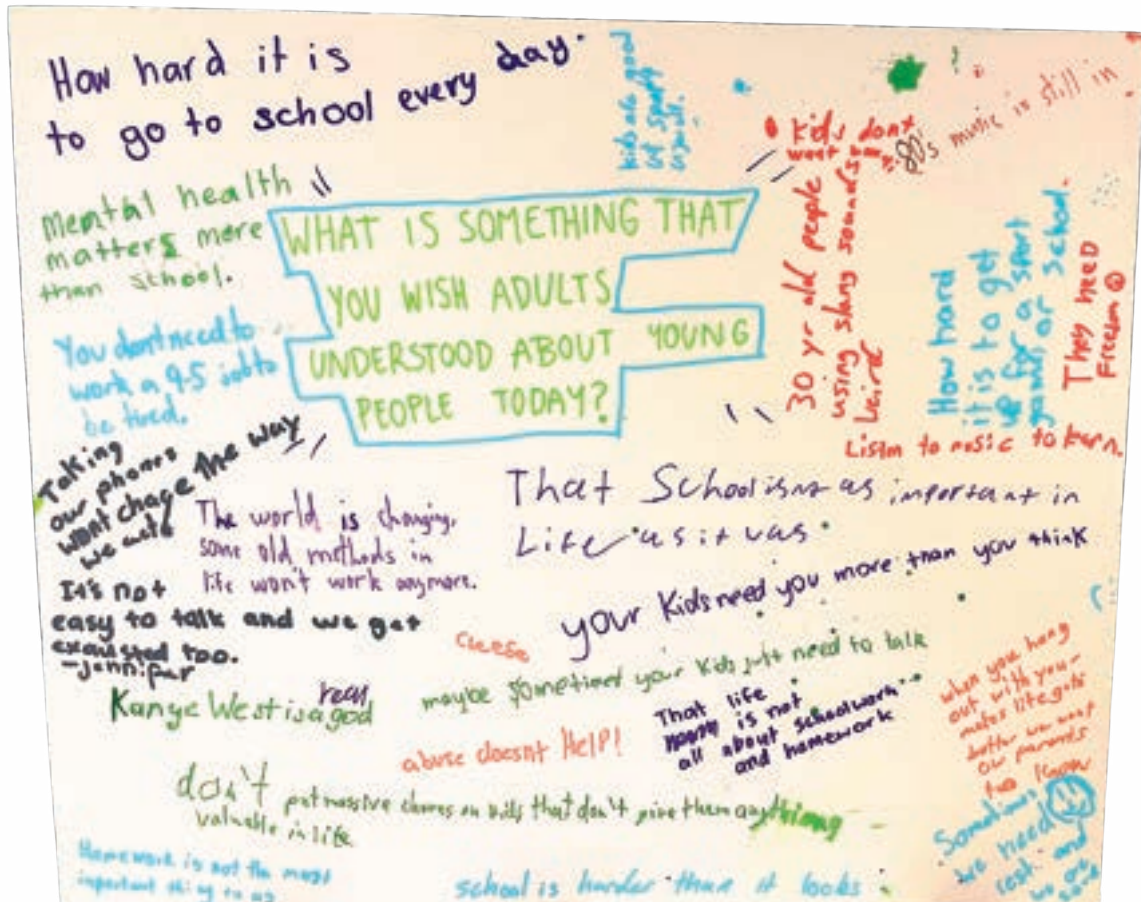 How hard it is
to go to school every day.
kids are good
at sport
Mental health
matters more
than school.
WHAT IS SOMETHING THAT
YOU WISH ADULTS
UNDERSTOOD ABOUT YOUNG
PEOPLE TODAY?
kids dont
want
80's music is still in
30 yr old people
using slang sounds
weird
How hard
it is to get
up for a sport
game or school.
They need
Freedom
Listen to music to learn.
You dont need to
work a 9-5 job to
be tired.
Taking
our phones
wont chage the way
we
The world is changing,
some old methods in
life won't work anymore.
That School isnt as important in
Life as it was
It's not
easy to talk and we get
exausted too.
your Kids need you more than you think
Cheese
Kanye West is a real god
maybe sometimes your kids just need to talk
abuse doesnt HELP!
That life
is not
all about schoolwork
and homework
when you hang
out with your
mates life gets
better we want
our parents
too know
don't put massive chores on kids that don't give them anything
valuable in life
Sometimes
we need
rest and
we are
Homework is not the most
important thing to us
school is harder than it looks